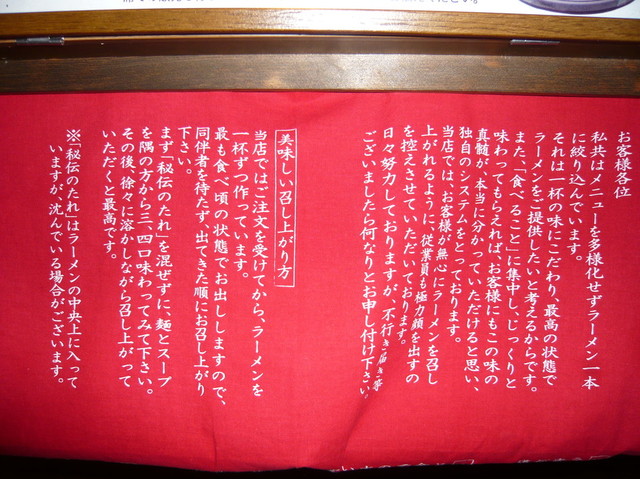 お客様各位
私共はメニューを多様化せずラーメン一本
に絞り込んでいます。
それは一杯の味にこだわり、最高の状態で
ラーメンをご提供したいと考えるからです。
また、「食べること」に集中し、じっくりと
味わってもらえれば、お客様にもこの味の
真髄が、本当に分かっていただけると思い、
独自のシステムをとっております。
当店では、お客様が無心にラーメンを召し
上がれるように、従業員も極力顔を出すの
を控えさせていただいております。
日々努力しておりますが、不行き届き等
ございましたら何なりとお申し付け下さい。
美味しい召し上がり方
当店ではご注文を受けてから、ラーメンを
一杯ずつ作っています。
最も食べ頃の状態でお出ししますので、
同伴者を待たず、出てきた順にお召し上がり
下さい。
まず「秘伝のたれ」を混ぜずに、麺とスープ
を隅の方から三、四口味わってみて下さい。
その後、徐々に溶かしながら召し上がって
いただくと最高です。
※「秘伝のたれ」はラーメンの中央上に入って
いますが、沈んでいる場合がございます。